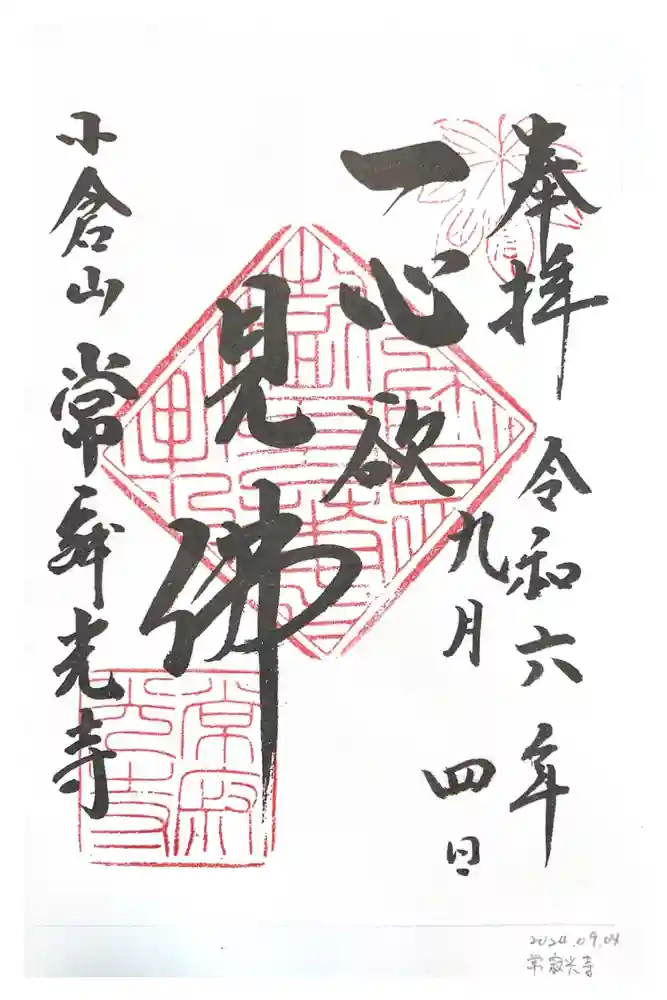 奉拝 令和六年
九月四日
一心欲
見佛
小倉山 常寂光寺
常寂
光寺
2024.09.04
常寂光寺